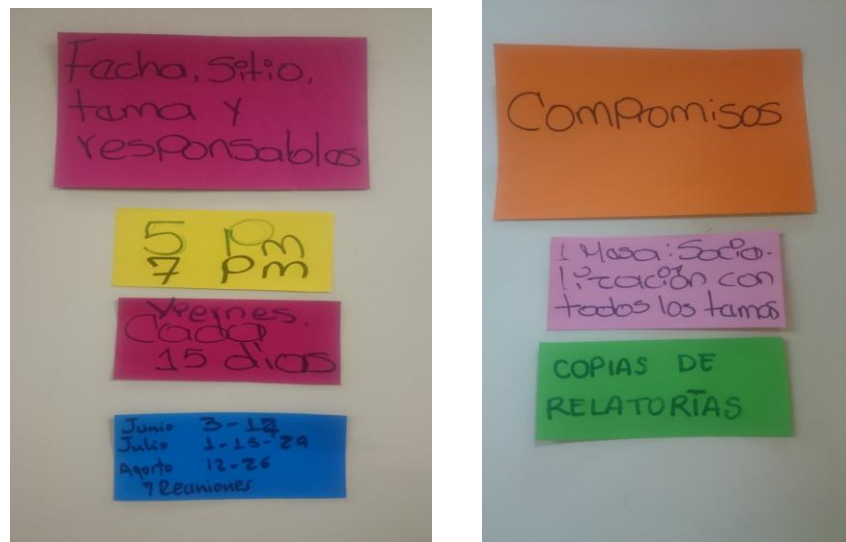 Fecha, Sitio,
tema y
responsables
5 pm
7 pm
Viernes.
Cada
15 dias
Junio 3-17
Julio 1-15-29
Agosto 12-26
7 Reuniones
Compromisos
1 Mesa: Socia-
lización con
todos los temas
COPIAS DE
RELATORÍAS